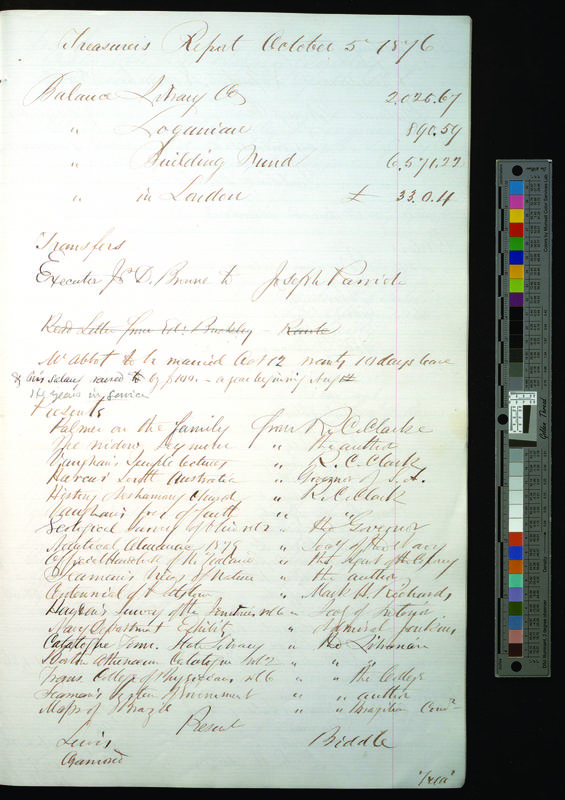 Treasurers Report October 5 1876
Balance Library Co 2,026.67
" Loganian 890.59
" Building Fund 6,571.22
" in London £ 33.0.4
Transfers
Executor Js D. Browne to Joseph Parrish
Read Letter from Buckley
Mr Abbot to be married Oct 12 wants 10 days leave
& his salary raised to by $100. a year beginning Aug
years in service
Presents
Palmer on the family from R. C. Clarke
The widow Seymour " the author
Vaughan's Temple lectures " R. C. Clark
Harcus' South Australia " Governor of S. A.
History of Neshaminy church " R. C. Clark
Vaughan's of faith " "
Geological Survey of Ohio vol 2 " The Governor
Nautical Almanac 1879 " Secy of the Navy
Official Handbook of the " the Agent of the Colony
Seaman's of Nature " the author
Centennial of " Mark H. Richards
Hayden's Survey of the Territories vol 6 " Secy of Interior
Navy Department Exhibit " Admiral Jenkins
Catalogue Tenn. State Library " The Librarian
Boston Athenaeum Catalogue Vol 2 " " "
Trans. College of Physicians vol 6 " " The College
Seaman's System of Government " " author
Maps of Brazil " " Brazilian
Present
Lewis Biddle